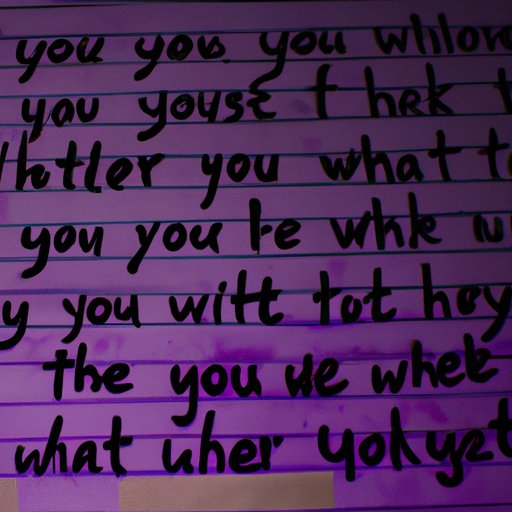 you you you whlove
you youse t hek t
hetler you what te
you you he whke u
y you witt tot hey
the you we whek
what uher yokyzt